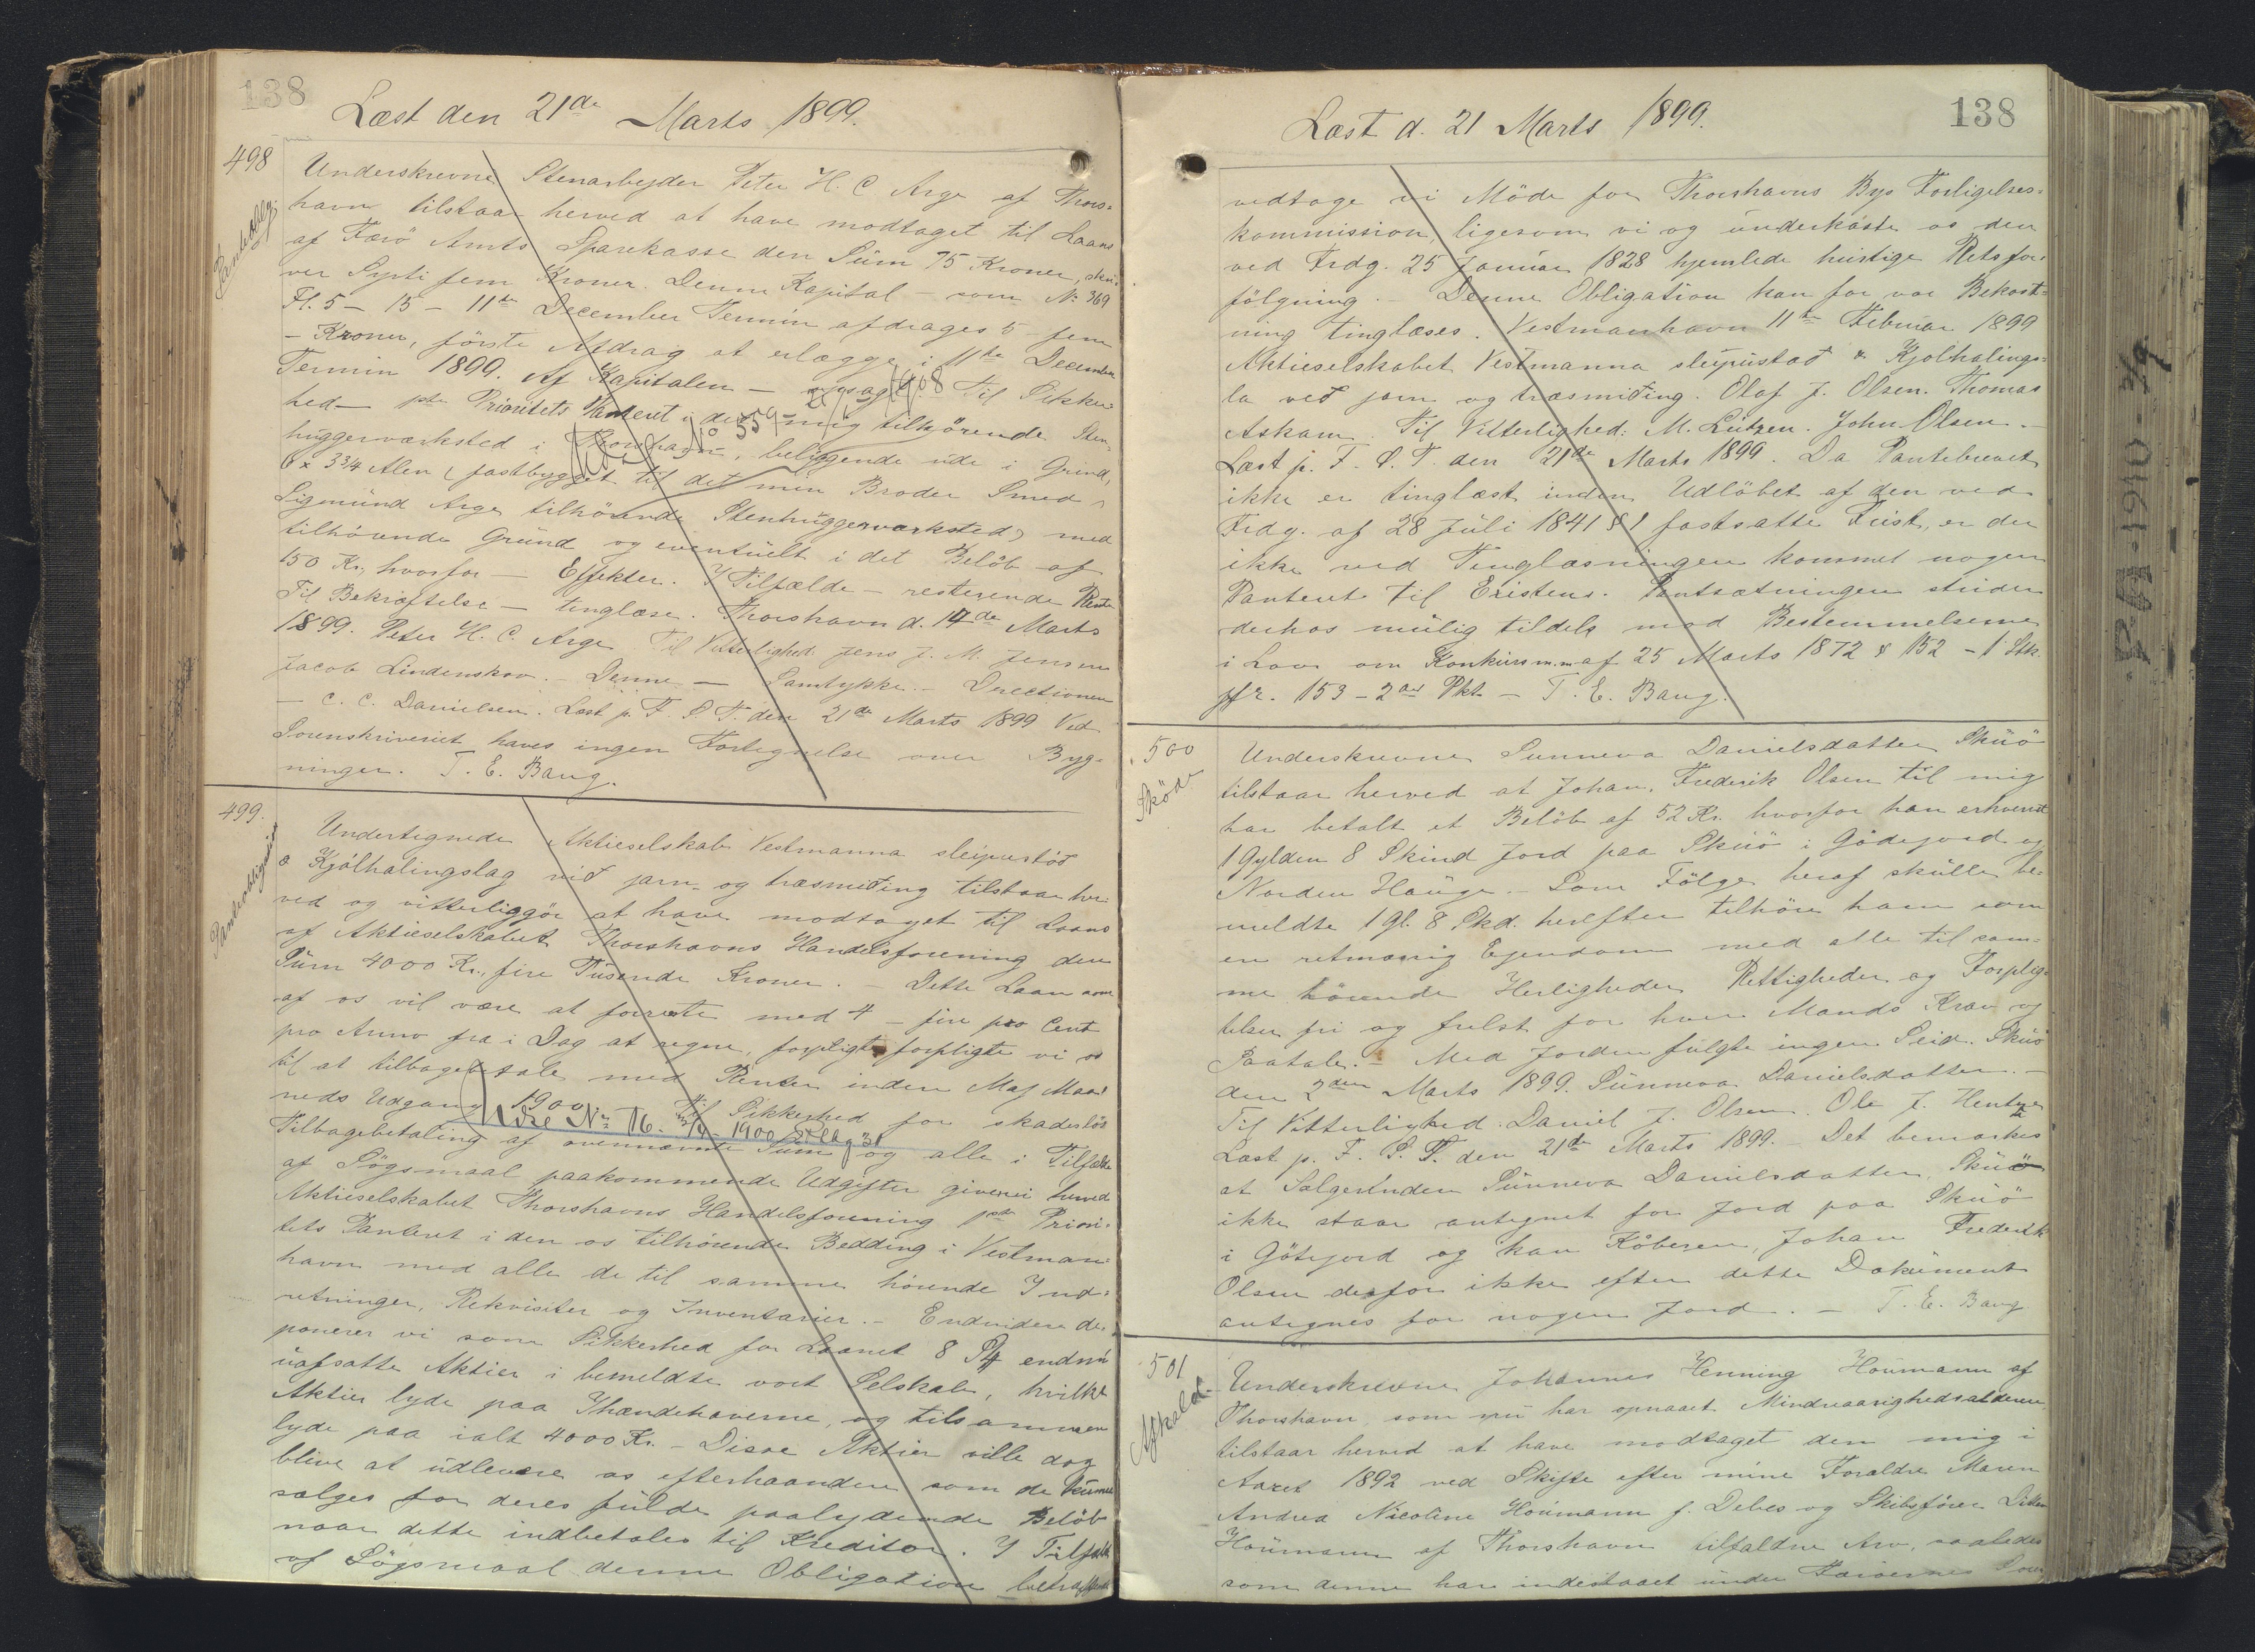 138
Læst den 21de Marts 1899.
498
Panteoblg.
Underskrevne Stenarbejder Peter H. C Arge af Thors=
havn tilstaar herved at have modtaget til Laans
af Færö Amts Sparekasse den Sum 75 Kroner, skri=
ver Sytti fem Kroner. Denne Kapital – som No 369
Fl. 5 – 15 – 11te December Termin afdrages 5 fem
– Kroner, förste Afdrag at erlægge i 11te December
Termin 1899. Af Kapitalen – opsagt. Til Sikker
hed – 1ste Prioritets Panteret i det mig tilhörende Sten=
huggerværksted i Thorshavn, beliggende ude i Grind,
6 x 3 3/4 Alen (fastbygget til det min Broder Smed
Sigmund Arge tilhörende Stenhuggerværksted) med
tilhörende Grund og eventuelt i det Belöb af
150 Kr, hvorfor – Effekter. I Tilfælde – resterende Rente
Til Bekræftelse – tinglæse. Thorshavn d. 14de Marts
1899. Peter H. C. Arge Til Vitterlighed: Jens J. M. Jensen
Jacob Lindenskov. – Denne – Samtykke. – Directionen
– C. C. Danielsen. Læst p. F. S. T. den 21de Marts 1899 Ved
Sorenskriveriet haves ingen Fortegnelse over Byg=
ninger. T. E. Bang.
499.
Panteobligation
Undertegnede Aktieselskab Vestmanna sleipustöð
& Kjölhalingslag við jarn- og træsmiðing tilstaar her=
ved og vitterliggör at have modtaget til Laans
af Aktieselskabet Thorshavns Handelsforening den
Sum 4000 Kr., fire Tusende Kroner. – Dette Laan som
af os vil være at forrente med 4 – fire pro Cent
pro Anno fra i Dag at regne, forpligte forpligte vi os
til at tilbagebetale med Renter inden Maj Maa=
neds Udgang 1900. Til Sikkerhed for skadeslös
Udsl No 116. 1900
Tilbagebetaling af ovennævnte Sum og alle i Tilfælde
af Sögsmaal paakommende Udgifter giver vi herved
Aktieselskabet Thorshavns Handelsforening 1ste Priori=
tets Panteret i den os tilhörende Bedding i Vestman=
havn med alle de til samme hörende Ind=
retninger, Rekvisiter og Inventarier. – Endvidere de=
ponerer vi som Sikkerhed for Laanet 8 St endnu
uafsatte Aktier i bemeldte vort Selskab, hvilke
Aktier lyde paa Ihændehaverne, og tilsammen
lyde paa ialt 4000 Kr. – Disse Aktier ville dog
blive at udlevere os efterhaanden som de kunne
sælges for deres fulde paalydende Belöb
naar dette indbetales til Kreditor. I Tilfælde
af Sögsmaal denne Obligation betræffende
138
Læst d. 21 Marts 1899.
vedtage vi Möde for Thorshavns Bys Forligelses=
kommission, ligesom vi og underkaste os den
ved Frdg. 25 Januar 1828 hjemlede hurtige Retsfor=
fölgning. – Denne Obligation kan for vor Bekost=
ning tinglæses. Vestmanhavn 11te Februar 1899
Aktieselskabet Vestmanna sleipustað & Kjølhalings=
la við jarn og træsmiðing. Olaf J. Olsen. Thomas
Askam. Til Vitterlighed: M. Lützen. John Olsen. –
Læst p. F. S. T. den 21de Marts 1899. Da Pantebrevet
ikke er tinglæst inden Udlöbet af den ved
Frdg. af 28 Juli 1841 § 1 fastsatte Frist, er der
ikke ved Tinglæsningen kommet nogen
Panteret til Existens. Pantsætningen strider
derhos mulig tildels mod Bestemmelserne
i Lov om Konkurs m.m af 25 Marts 1872 § 152 – 1 Stk.
jfr. 153 – 2det Pkt. – T. E. Bang.
500
Sköde
Underskrevne Sunneva Danielsdatter Skuö
tilstaar herved at Johan Frederik Olsen til mig
har betalt et Belöb af 52 Kr. hvorfor han erhvervet
1 Gylden 8 Skind Jord paa Skuö i Gödejord og
Norden Hauge. – Som Fölge heraf skulle be=
meldte 1 gl. 8 Skd. herefter tilhöre ham som
en retmæssig Ejendom med alle til sam=
me hörende Herligheder Rettigheder og Forplig=
telser fri og frelst for hver Mands Krav og
Paatale. – Med Jorden fulgte ingen Seid. Skuö
den 2den Marts 1899. Sunneva Danielsdatter. –
Til Vitterlighed: Daniel J. Olsen. Ole J. Hentze
Læst p. F. S. T. den 21de Marts 1899. – Det bemærkes
at Sælgerinden Sunneva Danielsdatter, Skuö
ikke staar antegnet for Jord paa Skuö
i Götejord og kan Köberen, Johan Frederik
Olsen derfor ikke efter dette Dokument
antegnes for nogen Jord. – T. E. Bang
501
Afkald.
Underskrevne Johannes Henning Houmann af
Thorshavn, som nu har opnaaet Mindreaarighedsalderen
tilstaar herved at have modtaget den mig i
Aaret 1892 ved Skifte efter mine Forældre Maren
Andrea Nicoline Houmann f. Debes og Skibsförer Ditlev
Houmann af Thorshavn tilfaldne Arv, saaledes
som denne har indestaaet under Færöernes